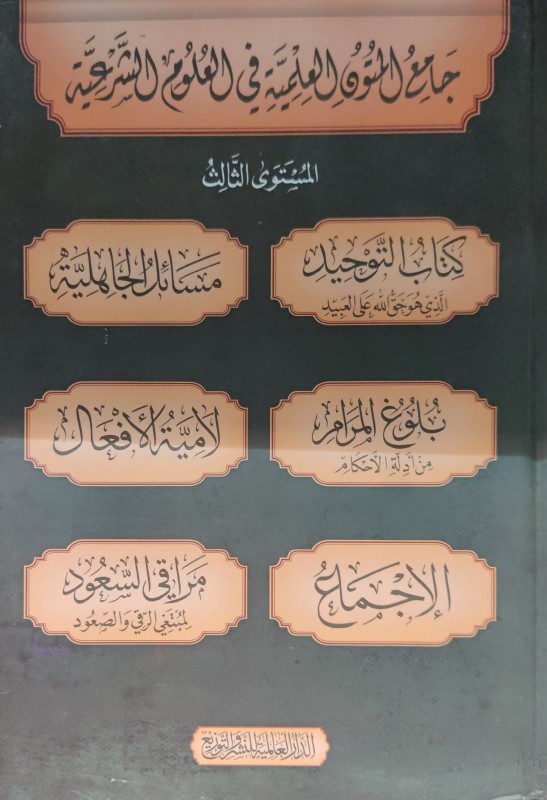 جَامِعُ المُتُونِ العِلْمِيَّةِ فِي العُلُومِ الشَّرْعِيَّةِ
المُسْتَوَى الثَّالِثُ
كِتَابُ التَّوْحِيدِ
الَّذِي هُوَ حَقُّ اللهِ عَلَى العَبِيدِ
مَسَائِلُ الجَاهِلِيَّةِ
بُلُوغُ المَرَامِ
مِنْ أَدِلَّةِ الأَحْكَامِ
لَامِيَّةُ الأَفْعَالِ
الإِجْمَاعُ
مَرَاقِي السُّعُودِ
لِمُبْتَغِي الرُّقِي وَالصُّعُودِ
الدار العالمية للنشر والتوزيع